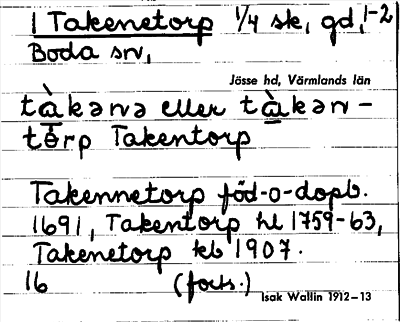 1 Takenetorp 1/4 sk, gd, 1-2
Boda sn,
Jösse hd, Värmlands län
tàkənə eller tàkən-
tėrp Takentorp
Takennetorp föd-o-dopb.
1691, Takentorp hl 1759-63,
Takenetorp kb 1907.
16 (forts.)
Isak Wallin 1912-13